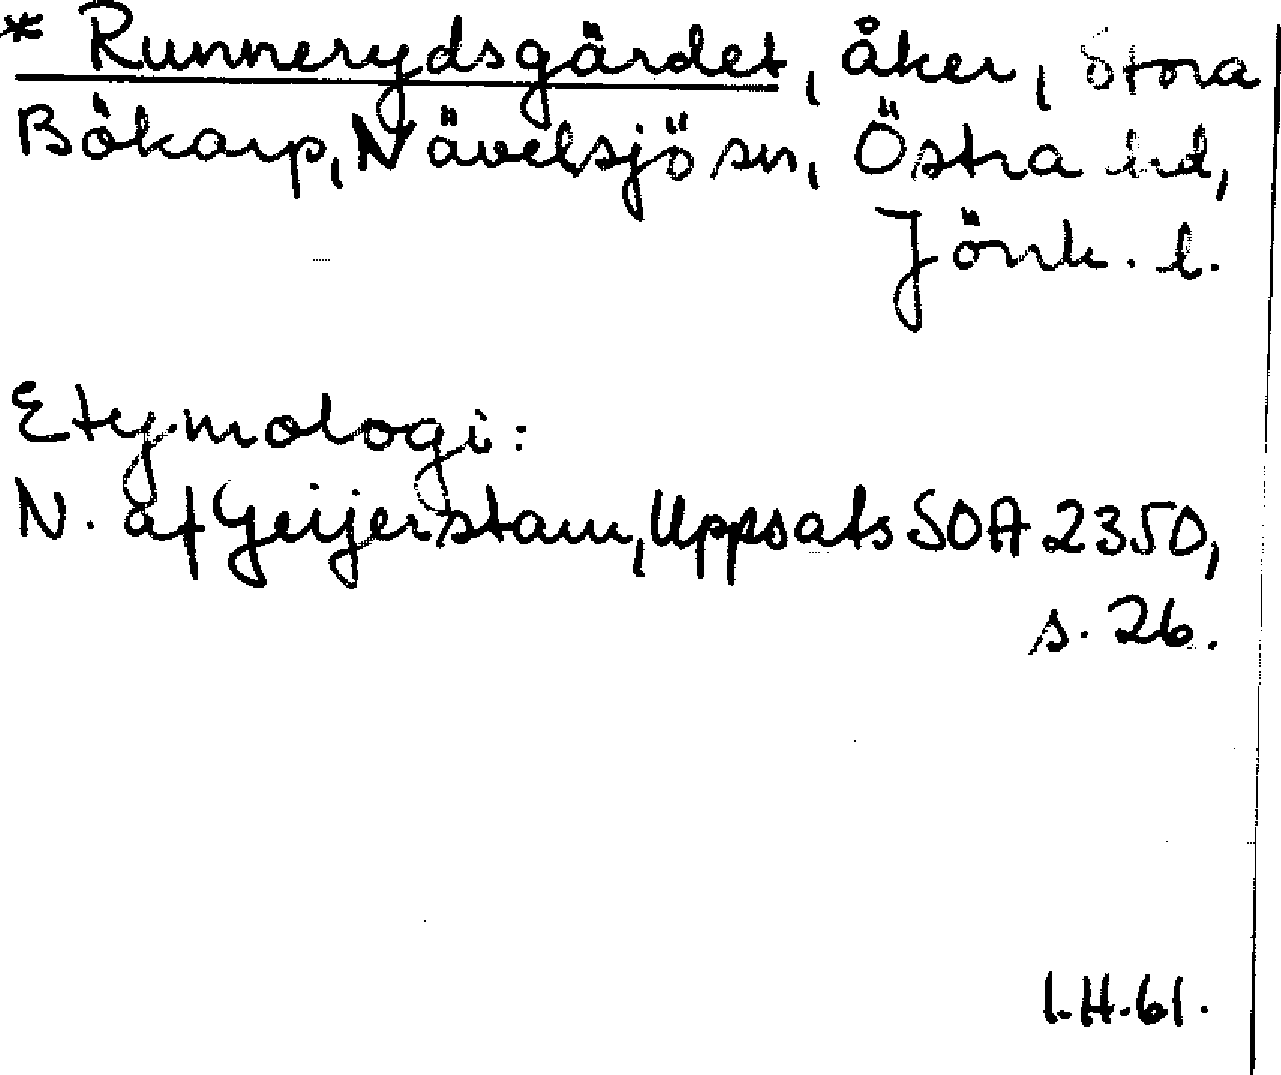 * Runnerydsgärdet, åker, Stora
Bökarp, Nävelsjö sn, Östra hd,
Jönk. l.
Etymologi:
N. af Geijerstam, Uppsats SOA 2350,
s. 26.
I.H.61.